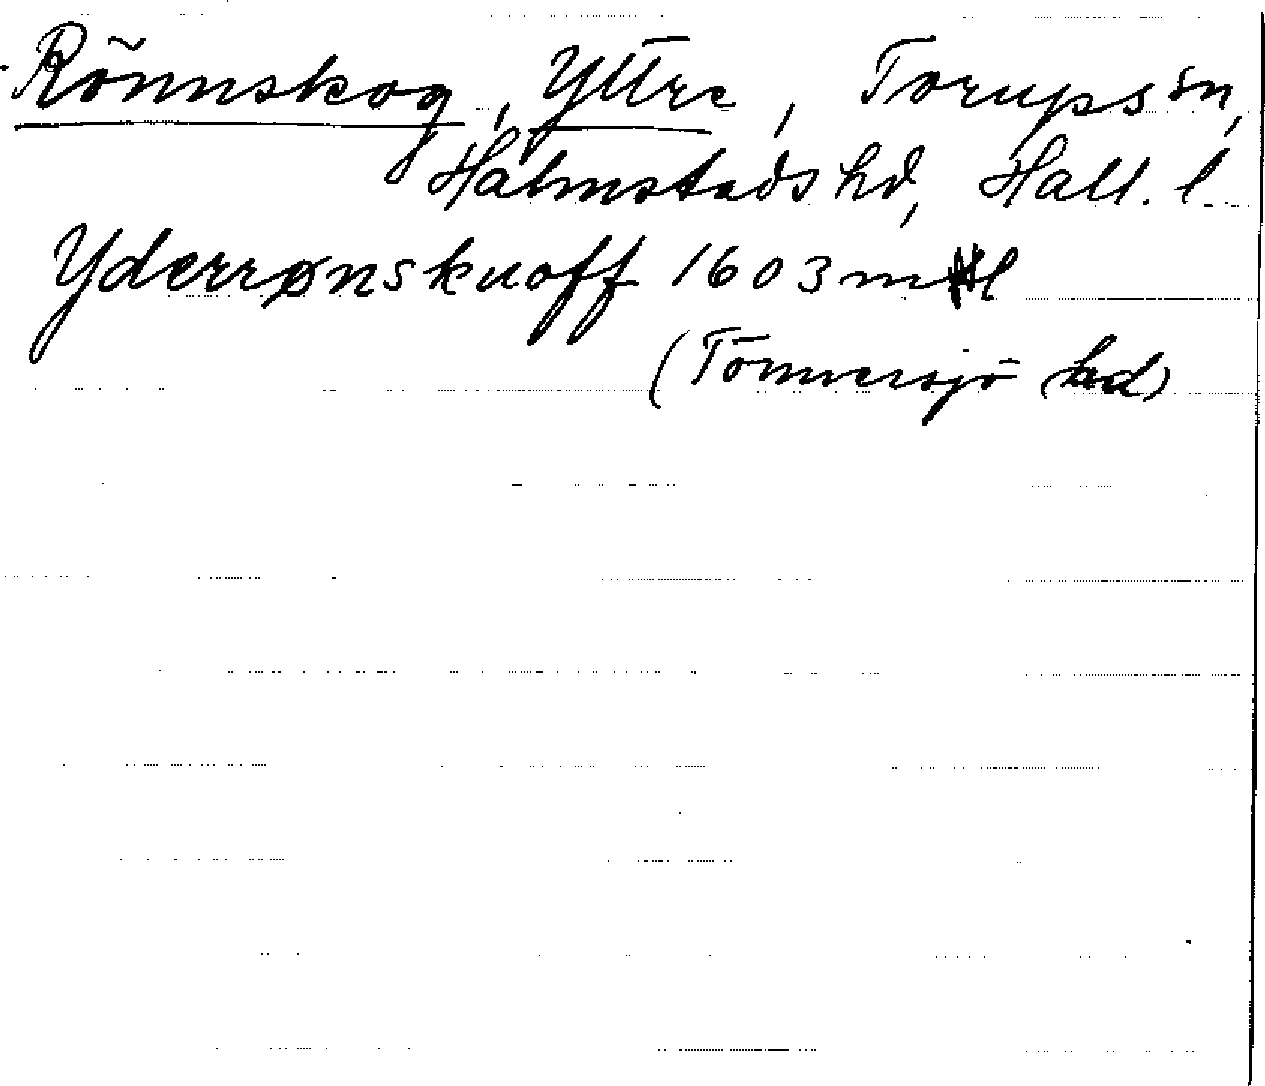 Rönnskog, Yttre, Torups sn,
Halmstads hd, Hall. l
Yderrønskuoff 1603 ml
(Tönnersjö hd)